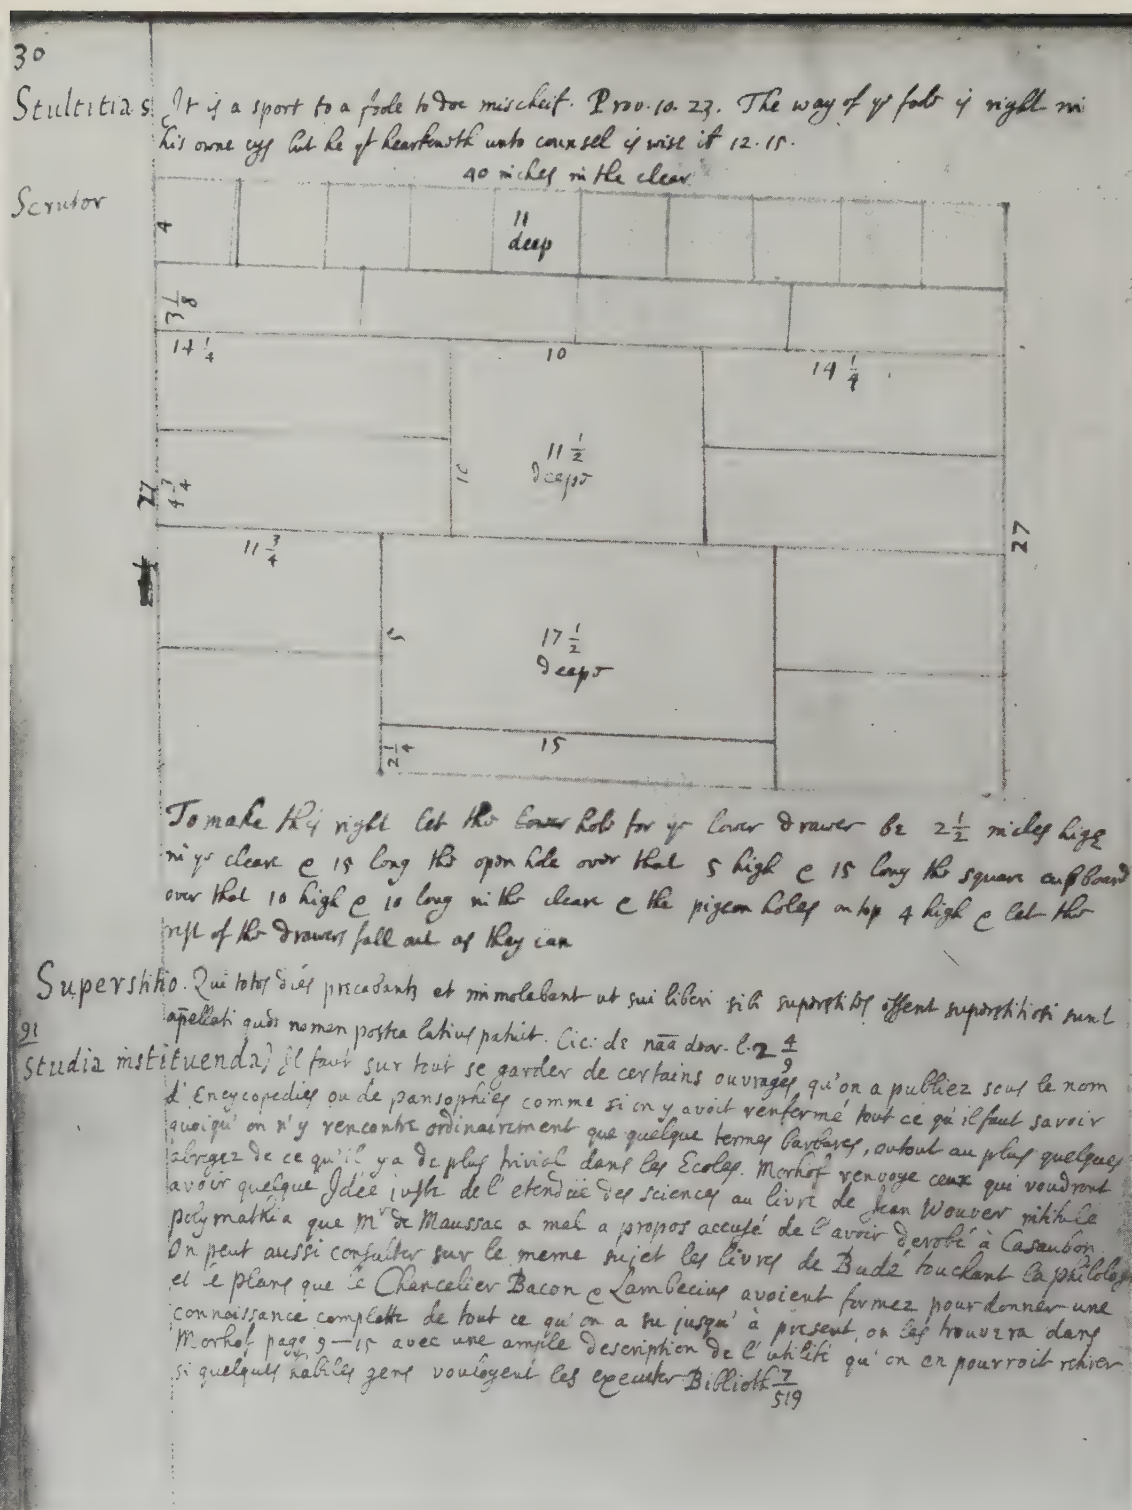 30
Stultitia s It is a sport to a foole to doe mischeif. Prov. 10. 23. The way of yͤ foole is right in
his owne eys but he yͭ hearkeneth unto counsel is wise it 12. 15.
40 inches in the clear
Scrutor
4
11
deep
3 1/8
14 1/4
10
14 1/4
11 1/2
deepe
10
27
4 3/4
27
11 3/4
5
17 1/2
deepe
15
2 1/4
To make this right let the hole for yͤ lower drawer be 2 1/2 inches high
in yͤ cleare & 15 long the open hole over that 5 high & 15 long the square cupboard
over that 10 high & 10 long in the cleare & the pigeon holes on top 4 high & let the
rest of the drawers fall out as they can
Superstitio. Qui totos dies precabantʒ et immolabant ut sui liberi sibi superstites essent superstitiosi sunt
apellati quod nomen postea latius patuit. Cic: de nāā deor. l. 2 4/9
91
Studia instituenda] Il faut sur tout se garder de certains ouvrages qu'on a publiez sous le nom
d'Encycopedies ou de pansophies comme si on y avoit renfermé tout ce qu'il faut savoir
quoiqu'on n'y rencontre ordinairement que quelque termes barbares, ou tout au plus quelques
abregez de ce qu'il y a de plus trivial dans les Ecoles. Morhof renvoye ceux qui voudront
avoir quelque Idée juste de l'etendüe des sciences au livre de Jean Wouver intitule
polymathia que Mʳ de Maussac a mal a propos accusé de l'avoir derobé à Casaubon
On peut aussi consulter sur le meme sujet les livres de Budé touchant la philologie
et le plans que le Chancelier Bacon & Lambecius avoient formez pour donner une
connaissance complette de tout ce qu'on a su jusqu'à present, on les trouvera dans
Morhof page 9–15 avec une ample description de l'utilité qu'on en pourroit retirer
si quelques habiles gens vouloyent les executer Biblioth 7/519